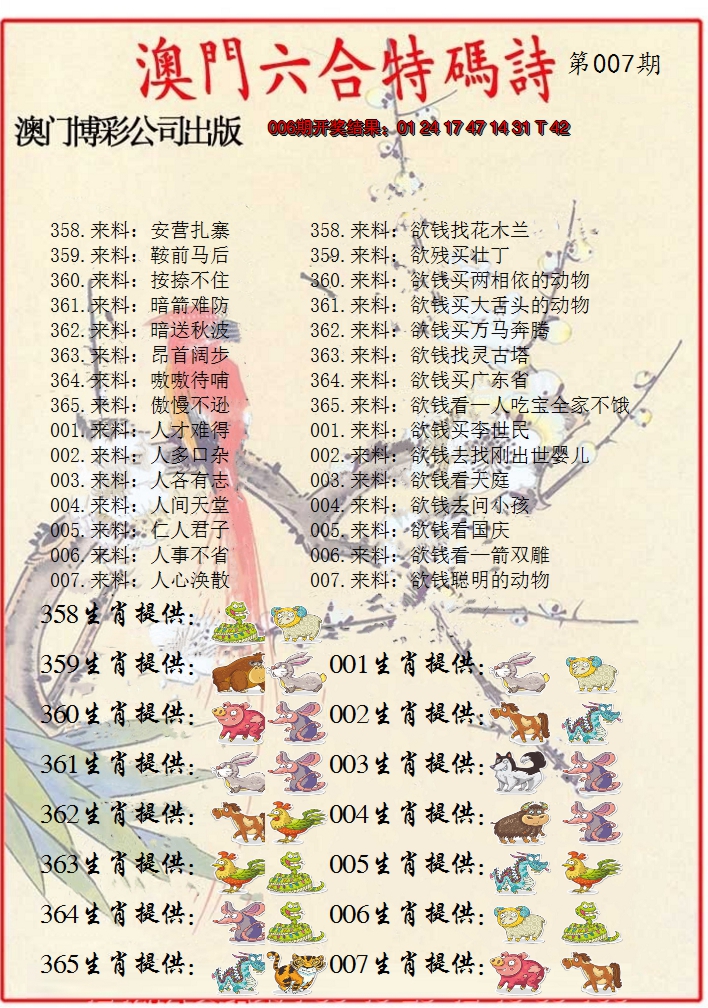 澳門六合特碼詩 第007期
澳门博彩公司出版 006期开奖结果：01 24 17 47 14 31 T 42
358.来料：安营扎寨 358.来料：欲钱找花木兰
359.来料：鞍前马后 359.来料：欲残买壮丁
360.来料：按捺不住 360.来料：欲钱买两相依的动物
361.来料：暗箭难防 361.来料：欲钱买大舌头的动物
362.来料：暗送秋波 362.来料：欲钱买万马奔腾
363.来料：昂首阔步 363.来料：欲钱找灵古塔
364.来料：嗷嗷待哺 364.来料：欲钱买广东省
365.来料：傲慢不逊 365.来料：欲钱看一人吃宝全家不饿
001.来料：人才难得 001.来料：欲钱买李世民
002.来料：人多口杂 002.来料：欲钱去找刚出世婴儿
003.来料：人各有志 003.来料：欲钱看天庭
004.来料：人间天堂 004.来料：欲钱去问小孩
005.来料：仁人君子 005.来料：欲钱看国庆
006.来料：人事不省 006.来料：欲钱看一箭双雕
007.来料：人心涣散 007.来料：欲钱聪明的动物
358生肖提供：
359生肖提供： 001生肖提供：
360生肖提供： 002生肖提供：
361生肖提供： 003生肖提供：
362生肖提供： 004生肖提供：
363生肖提供： 005生肖提供：
364生肖提供： 006生肖提供：
365生肖提供： 007生肖提供：